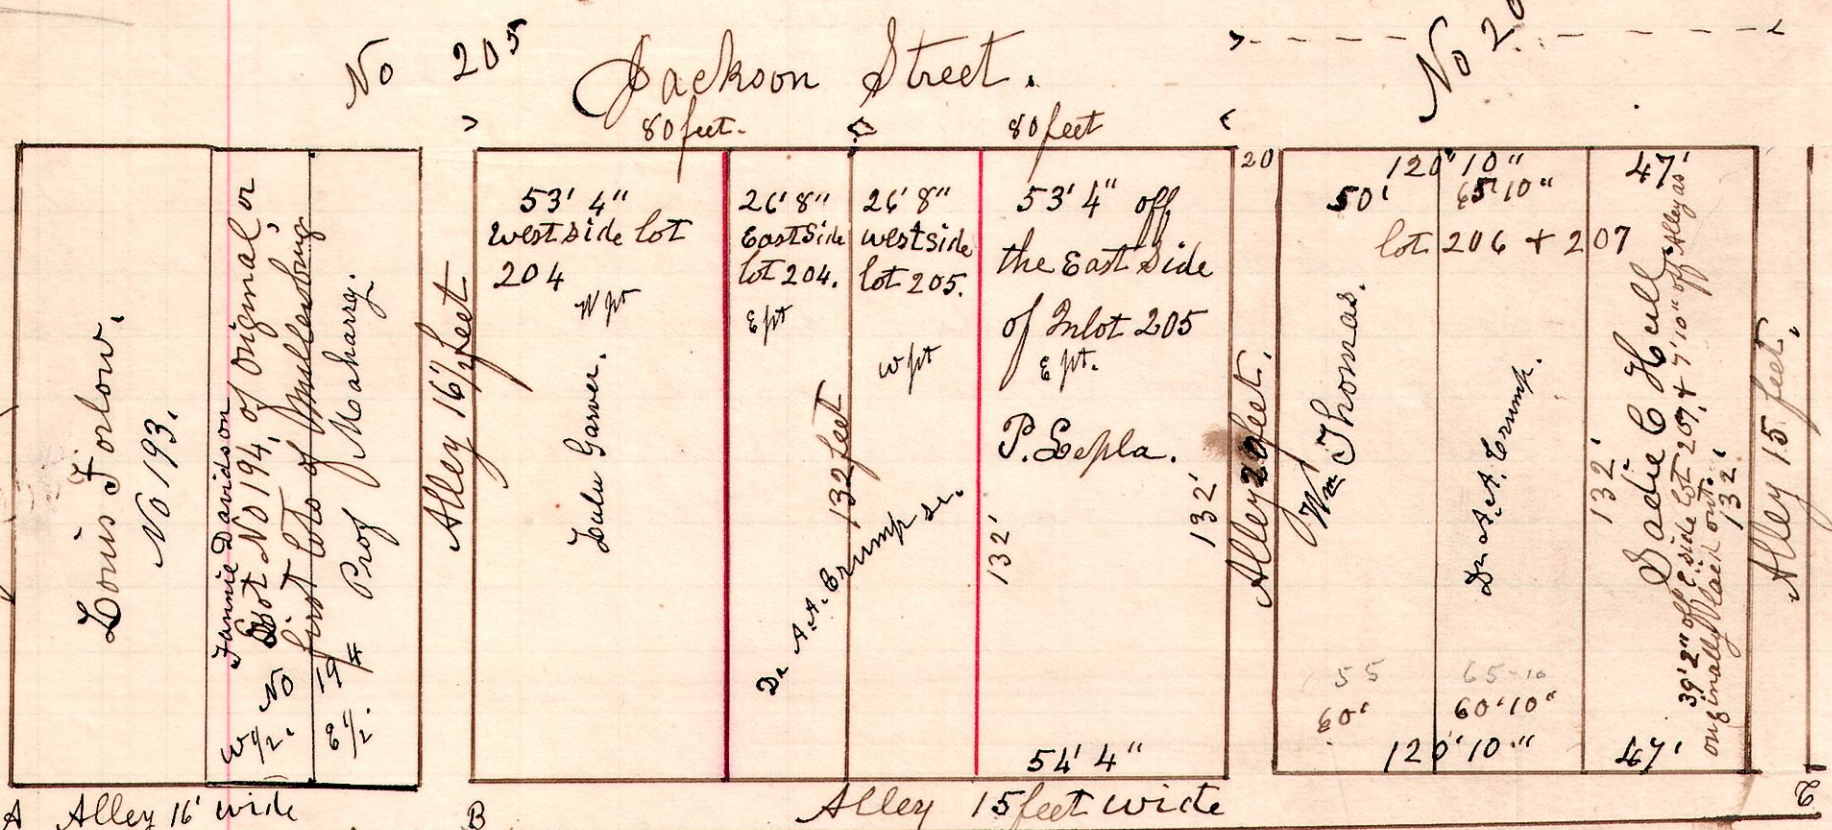 No 205
Jackson Street.
No 20
80 feet.
80 feet
Louis Forlow.
No 193.
Fannie Davidson
Lot No 194, of original or
first lots of Millersburg
Prof Maharry.
W 1/2. No 194
E 1/2.
Alley 16 1/2 feet
53' 4"
west side lot
204
W pt
Lulu Garver.
26' 8"
East Side
lot 204.
E pt
26' 8"
west side
lot 205.
w pt
132 feet
Dr A.A. Crump sr.
53' 4" off
the East Side
of Inlot 205
E pt.
P. Lepla.
132'
132'
54' 4"
20
Alley 20 feet.
120' 10"
50'
65' 10"
47'
lot 206 + 207
Wm Thomas.
Dr A.A. Crump.
132'
Sadie C Hull
39' 2" off E. side lot 207, + 7' 10" off Alley as
originally laid out.
132'
55
65-10
60'
60' 10"
120' 10"
47'
Alley 15 feet.
A Alley 16' wide
B
Alley 15 feet wide